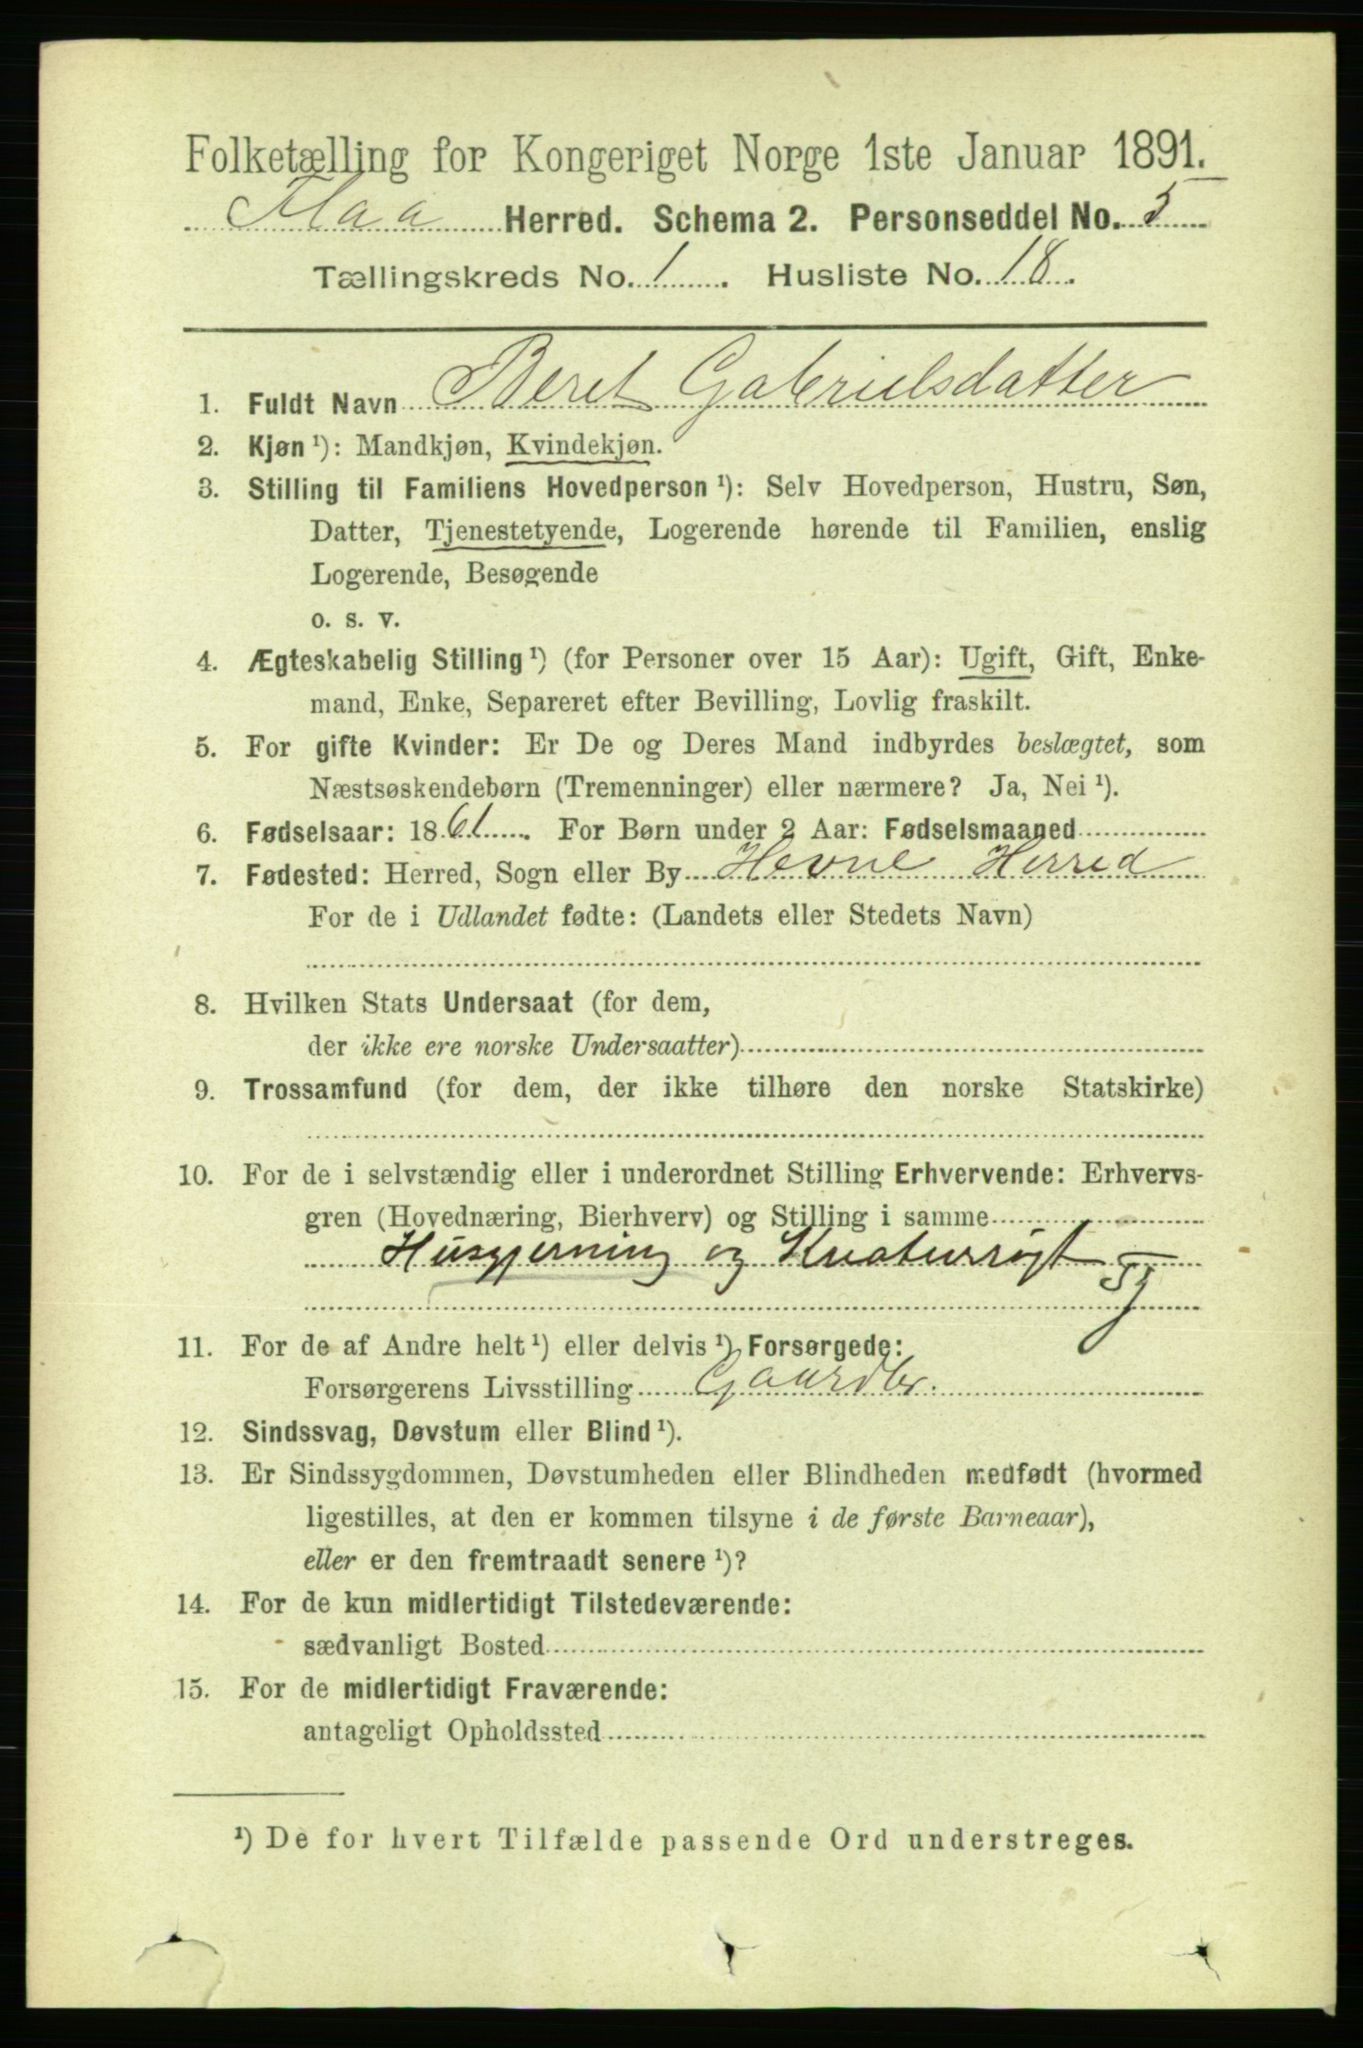 Folketælling for Kongeriget Norge 1ste Januar 1891.
Flaa Herred. Schema 2. Personseddel No. 5
Tællingskreds No. 1. Husliste No. 18.
1. Fuldt Navn Beret Gabrielsdatter
2. Kjøn ¹): Mandkjøn, Kvindekjøn.
3. Stilling til Familiens Hovedperson ¹): Selv Hovedperson, Hustru, Søn,
Datter, Tjenestetyende, Logerende hørende til Familien, enslig
Logerende, Besøgende
o. s. v.
4. Ægteskabelig Stilling ¹) (for Personer over 15 Aar): Ugift, Gift, Enke-
mand, Enke, Separeret efter Bevilling, Lovlig fraskilt.
5. For gifte Kvinder: Er De og Deres Mand indbyrdes beslægtet, som
Næstsøskendebørn (Tremenninger) eller nærmere? Ja, Nei ¹).
6. Fødselsaar: 1861. For Børn under 2 Aar: Fødselsmaaned
7. Fødested: Herred, Sogn eller By Hevne Herred
For de i Udlandet fødte: (Landets eller Stedets Navn)
8. Hvilken Stats Undersaat (for dem,
der ikke ere norske Undersaatter)
9. Trossamfund (for dem, der ikke tilhøre den norske Statskirke)
10. For de i selvstændig eller i underordnet Stilling Erhvervende: Erhvervs-
gren (Hovednæring, Bierhverv) og Stilling i samme
Husgjerning og Kreaturrøgt
11. For de af Andre helt ¹) eller delvis ¹) Forsørgede:
Forsørgerens Livsstilling Gaardbr.
12. Sindssvag, Døvstum eller Blind ¹).
13. Er Sindssygdommen, Døvstumheden eller Blindheden medfødt (hvormed
ligestilles, at den er kommen tilsyne i de første Barneaar),
eller er den fremtraadt senere ¹)?
14. For de kun midlertidigt Tilstedeværende:
sædvanligt Bosted
15. For de midlertidigt Fraværende:
antageligt Opholdssted
¹) De for hvert Tilfælde passende Ord understreges.